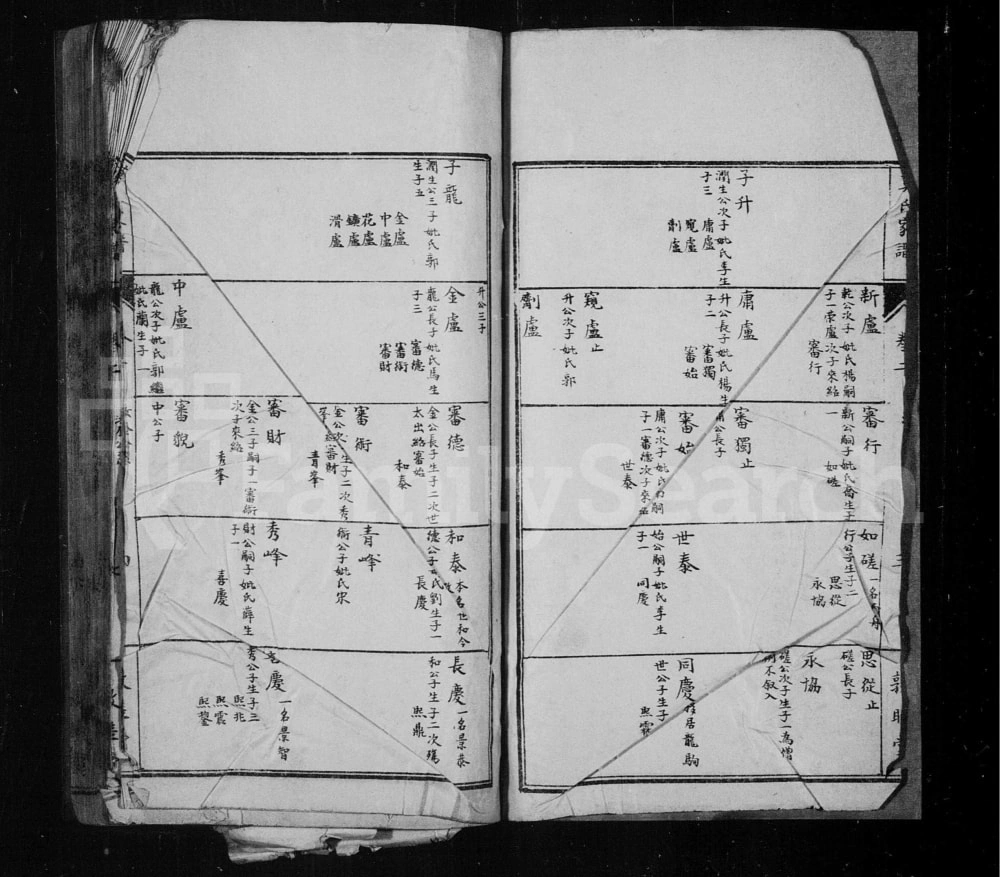 氏家譜
子升
潤生公次子妣氏李生
子三
庸盧
窺盧
劑盧
新盧
乾公次子妣氏楊嗣
子一荣盧次子來紹
審行
庸盧
升公長子妣氏楊生
子二
審獨
審始
窺盧止
升公次子妣氏郭
劑盧
審行
新公嗣子妣氏喬生子
一
如磋
審獨止
庸公長子
審始
庸公次子妣氏
嗣
子一審德次子來
世泰
如磋
行公子生子二
思從
永協
世泰
始公嗣子妣氏李生
子一
同慶
思從止
磋公長子
永協
磋公次子生子一為僧
不叙入
同慶
居龍駒
世公子生子
熙霖
子龍
潤生公三子妣氏郭
生子五
金盧
中盧
花盧
鑛盧
滑盧
升公三子
金盧
龍公長子妣氏馬生
子三
審德
審衡
審財
中盧
龍公次子妣氏郭繼
妣氏蘭生子一
審德
金公長子生子二次世
太出紹審始
和泰
審衡
金公次子生子二次秀
峯紹審財
青峯
審財
金公三子嗣子一審衡
次子來紹
秀峯
審貌
中公子
和泰
本名世和今
德公子妣氏劉生子一
長慶
青峰
衡公子妣氏宋
秀峰
財公嗣子妣氏薛生
子一
喜慶
長慶
一名景泰
和公子生子二次殤
熙鼎
慶
一名景智
秀公子生子三
熙兆
熙震
熙鑒